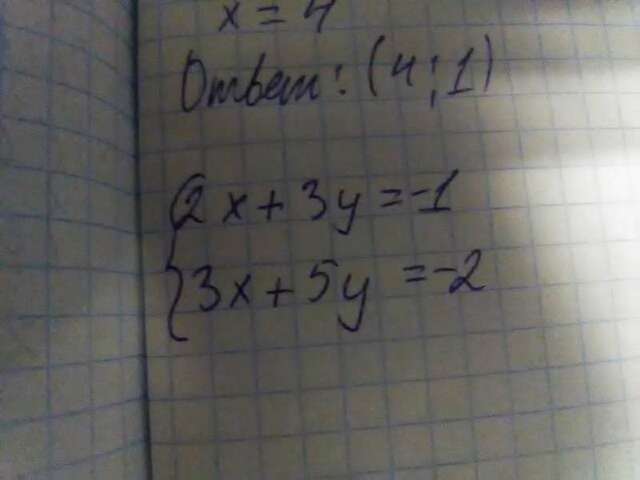 x = 4
Ответ: (4;1)
2x + 3y = -1
3x + 5y = -2